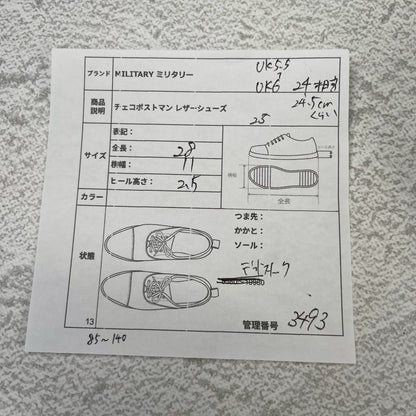 UK5.5
ブランド MILITARY ミリタリー
UK6 24相当
24.5cm
くらい
商品説明 チェコポストマン レザーシューズ
25
サイズ
表記:
全長: 28
横幅: 11
ヒール高さ: 2.5
ヒール高さ
横幅
全長
カラー
状態
つま先:
かかと:
ソール:
デッドストーク
13
管理番号 3493
85~140